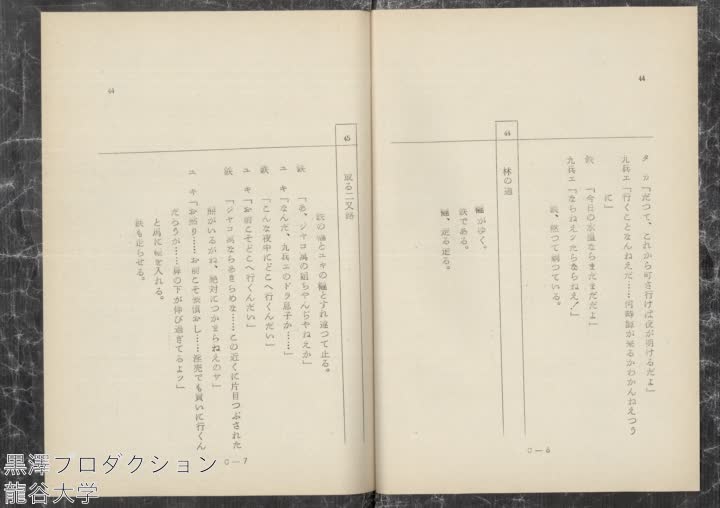 44
タカ「だつて、これから町さ行けば夜が明けるだよ」
九兵エ「行くことなんねえだ……何時鉄が来るかわかんねえつうに」
鉄「今日の水温ならまだまだだよ」
九兵エ「ならねえツたらならねえ！」
鉄、黙つて研つている。
44
林の道
橇がゆく。
鉄である。
橇、辷る辷る。
C—6
44
45
或る二又路
鉄の橇とユキの橇とすれ違つて止る。
鉄「あ、ジヤコ萬の娘ちやんぢやねえか」
ユキ「なんだ、九兵エのドラ息子か……」
鉄「こんな夜中にどこへ行くんだい」
ユキ「お前こそどこへ行くんだい」
鉄「ジヤコ萬ならあきらめな……この近くに片目つぶされた
熊がいるがね、絶対につかまらねえのサ」
ユキ「お黙り……お前こそ夜濱おし……淫売でも買いに行くん
だらうが……鼻の下が伸び過ぎてるよッ」
と馬に鞭を入れる。
鉄も走らせる。
C—7
黒澤プロダクション
龍谷大学